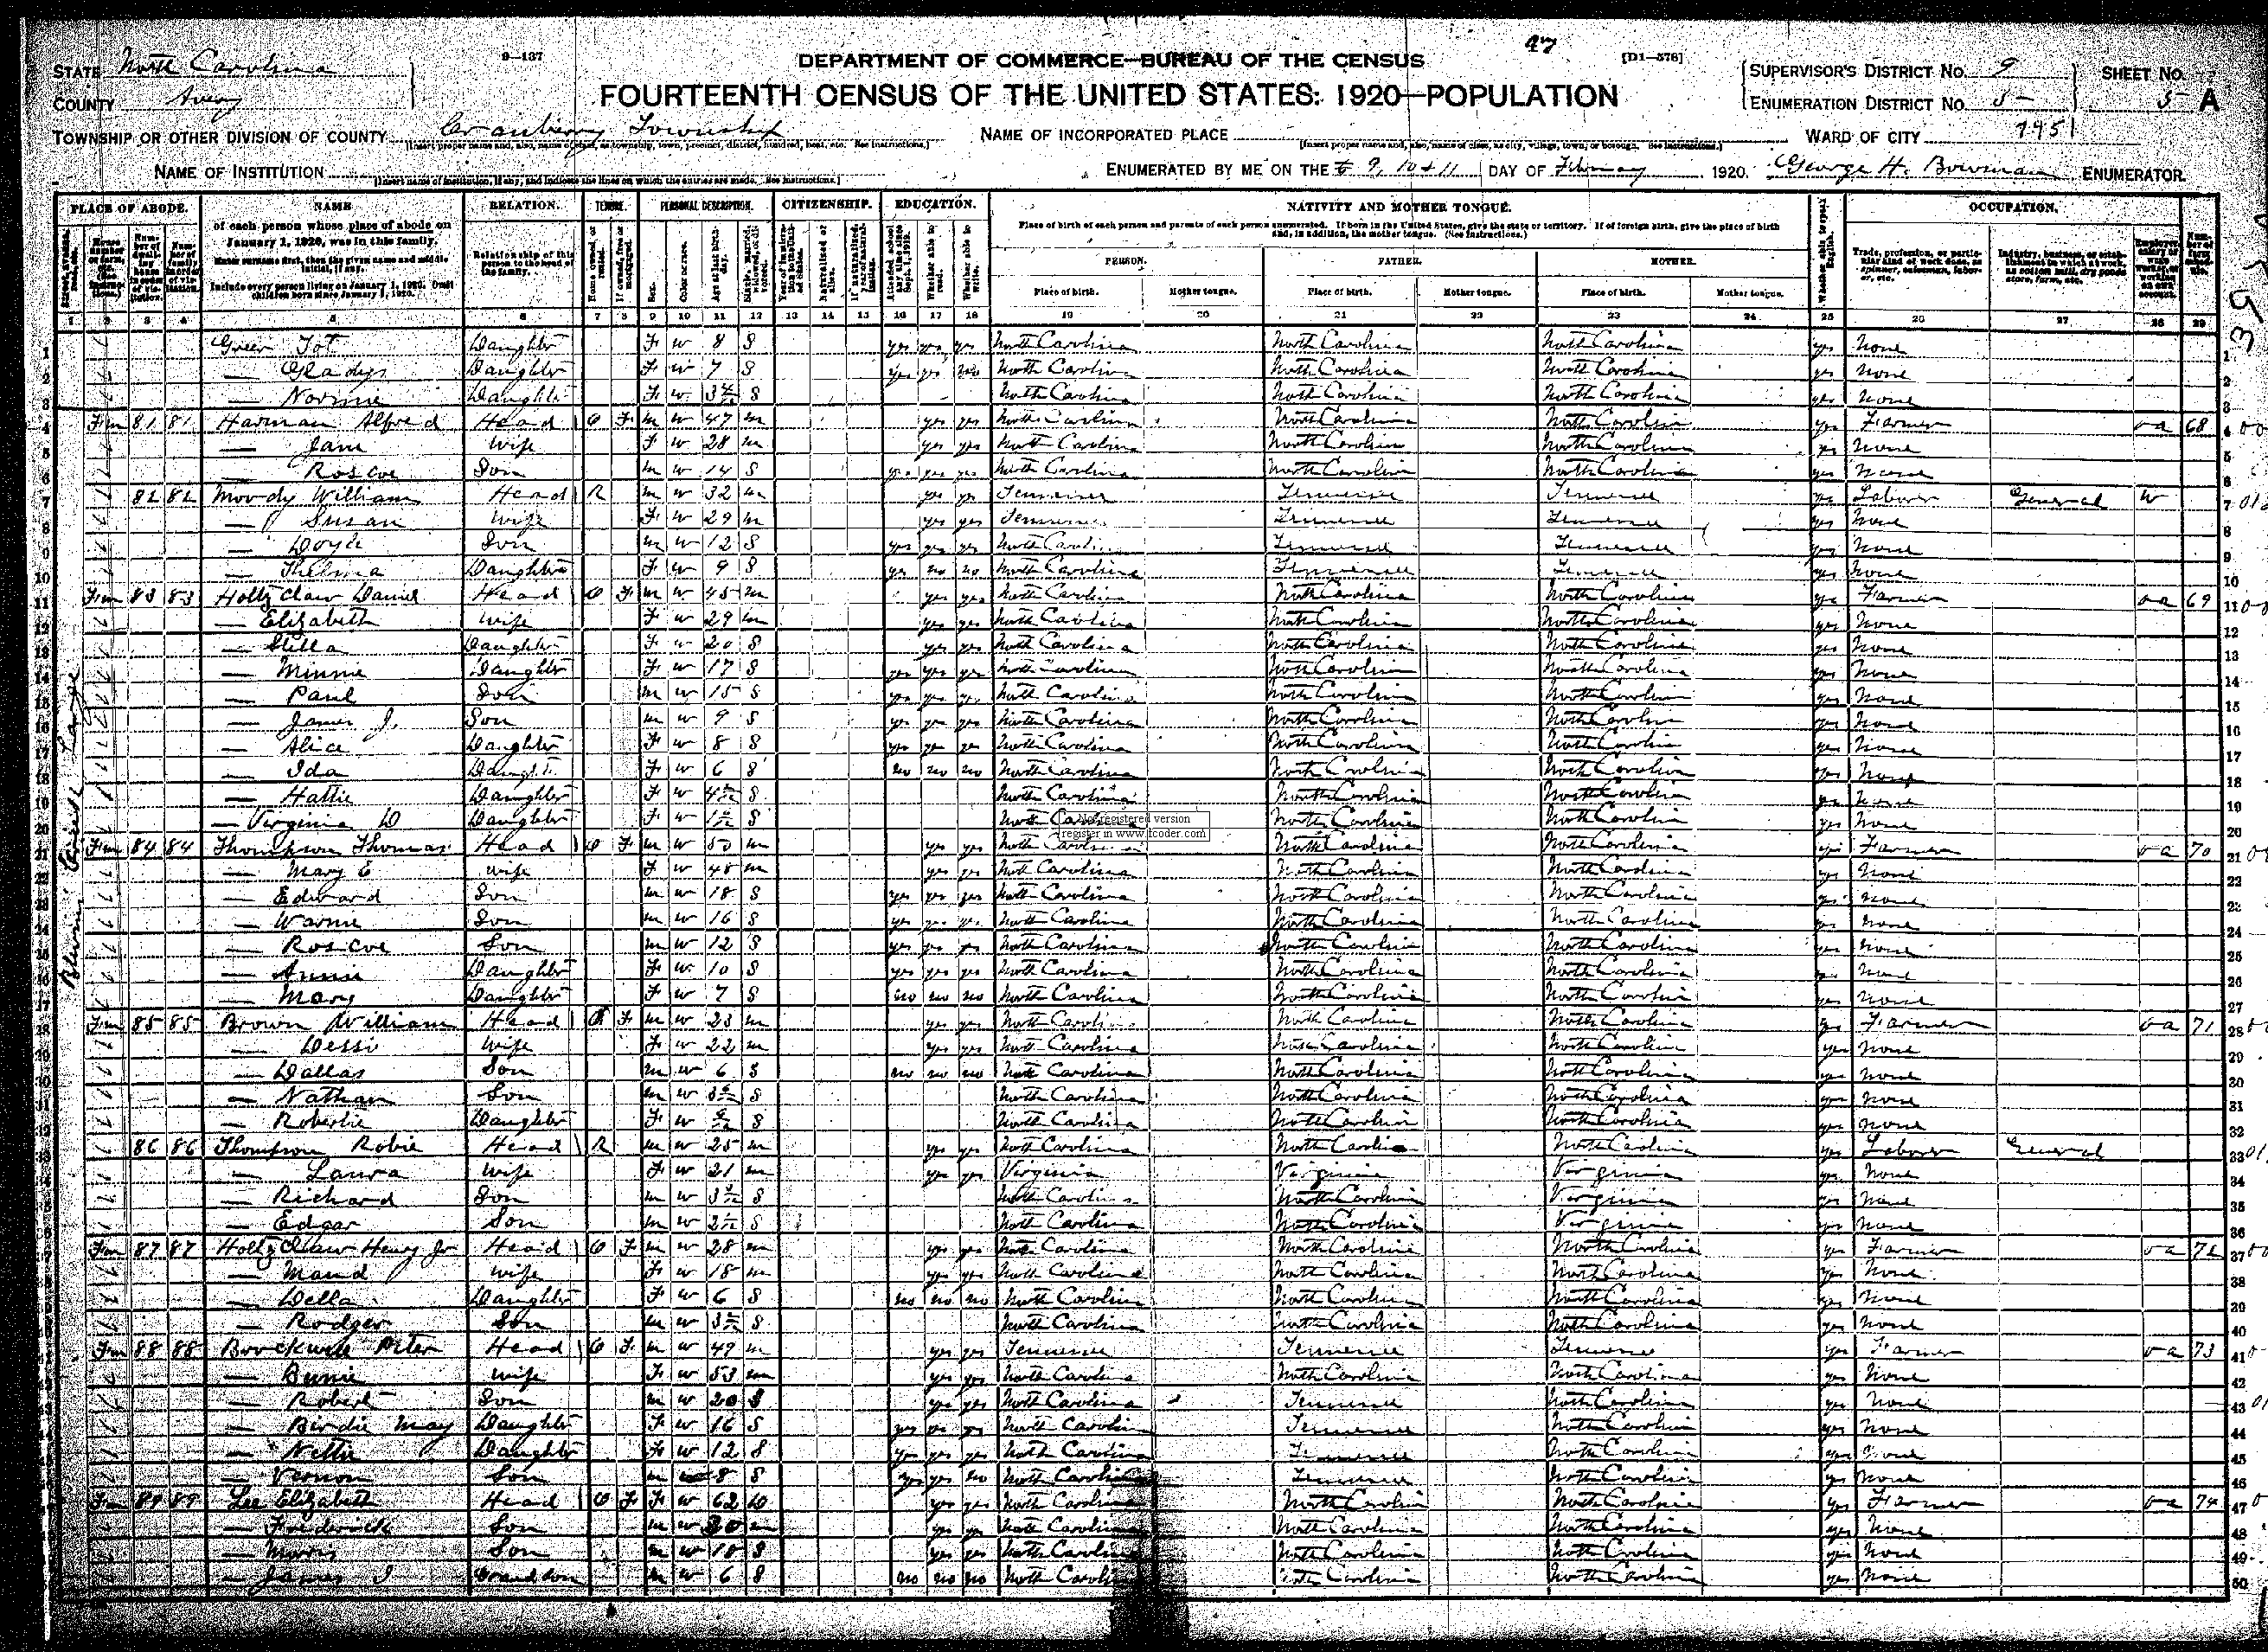 9—137
DEPARTMENT OF COMMERCE—BUREAU OF THE CENSUS
[D1—578]
STATE North Carolina
COUNTY Avery
FOURTEENTH CENSUS OF THE UNITED STATES: 1920—POPULATION
SUPERVISOR'S DISTRICT No. 9 SHEET No.
ENUMERATION DISTRICT No. 5 5 A
TOWNSHIP OR OTHER DIVISION OF COUNTY Cranberry Township NAME OF INCORPORATED PLACE WARD OF CITY 7951
NAME OF INSTITUTION ENUMERATED BY ME ON THE 9, 10 + 11 DAY OF February, 1920. George H. Bowman, ENUMERATOR.
PLACE OF ABODE. NAME RELATION. TENURE. PERSONAL DESCRIPTION. CITIZENSHIP. EDUCATION. NATIVITY AND MOTHER TONGUE. OCCUPATION.
of each person whose place of abode on January 1, 1920, was in this family.
Enter surname first, then the given name and middle initial, if any.
Include every person living on January 1, 1920. Omit children born since January 1, 1920.
Relationship of this person to the head of the family.
Place of birth of each person and parents of each person enumerated. If born in the United States, give the state or territory. If of foreign birth, give the place of birth and, in addition, the mother tongue. (See Instructions.)
PERSON. FATHER. MOTHER.
Place of birth. Mother tongue. Place of birth. Mother tongue. Place of birth. Mother tongue.
1 2 3 4 5 6 7 8 9 10 11 12 13 14 15 16 17 18 19 20 21 22 23 24 25 26 27 28 29
1 Green Tot Daughter F W 8 S yes yes yes North Carolina North Carolina North Carolina yes None
2 — Gladys Daughter F W 7 S yes yes no North Carolina North Carolina North Carolina yes None
3 — Daughter F W S North Carolina North Carolina North Carolina yes None
4 Fm 81 81 Harman Alfred Head O F M W 47 M yes yes North Carolina North Carolina North Carolina yes Farmer oa 68
5 — Jane Wife F W 28 M yes yes North Carolina North Carolina North Carolina yes None
6 — Roscoe Son M W 14 S yes yes yes North Carolina North Carolina North Carolina yes None
7 82 82 Moody William Head R M W 32 M yes yes Tennessee Tennessee Tennessee yes Laborer General W
8 — Susan Wife F W 29 M yes yes Tennessee Tennessee Tennessee yes None
9 — Doyle Son M W 12 S yes yes yes North Carolina Tennessee Tennessee yes None
10 — Thelma Daughter F W 9 S yes no no North Carolina Tennessee Tennessee yes None
11 Fm 83 83 Holtzclaw Daniel Head O F M W 45 M yes yes North Carolina North Carolina North Carolina yes Farmer oa 69
12 — Elizabeth Wife F W 29 M yes yes North Carolina North Carolina North Carolina yes None
13 — Stella Daughter F W 20 S yes yes North Carolina North Carolina North Carolina yes None
14 — Minnie Daughter F W 17 S yes yes yes North Carolina North Carolina North Carolina yes None
15 — Paul Son M W 15 S yes yes yes North Carolina North Carolina North Carolina yes None
16 — James J. Son M W 9 S yes yes yes North Carolina North Carolina North Carolina yes None
17 — Alice Daughter F W 8 S yes yes yes North Carolina North Carolina North Carolina yes None
18 — Ida Daughter F W 6 S no no no North Carolina North Carolina North Carolina yes None
19 — Hattie Daughter F W S North Carolina North Carolina North Carolina yes None
20 — Virginia D Daughter F W S North Carolina North Carolina North Carolina yes None
Not registered version
register in www.tcoder.com
21 Fm 84 84 Thompson Thomas Head O F M W 50 M yes yes North Carolina North Carolina North Carolina yes Farmer oa 70
22 — Mary E Wife F W 48 M yes yes North Carolina North Carolina North Carolina yes None
23 — Edward Son M W 18 S yes yes yes North Carolina North Carolina North Carolina yes None
24 — Son M W 16 S yes yes yes North Carolina North Carolina North Carolina yes None
25 — Roscoe Son M W 12 S yes yes yes North Carolina North Carolina North Carolina yes None
26 — Annie Daughter F W 10 S yes yes yes North Carolina North Carolina North Carolina yes None
27 — Mary Daughter F W 7 S no no no North Carolina North Carolina North Carolina yes None
28 Fm 85 85 Brown William Head O F M W 23 M yes yes North Carolina North Carolina North Carolina yes Farmer oa 71
29 — Dessie Wife F W 22 M yes yes North Carolina North Carolina North Carolina yes None
30 — Dallas Son M W 6 S no no no North Carolina North Carolina North Carolina yes None
31 — Nathan Son M W S North Carolina North Carolina North Carolina yes None
32 — Daughter F W S North Carolina North Carolina North Carolina yes None
33 86 86 Thompson Robie Head R M W 25 M yes yes North Carolina North Carolina North Carolina yes Laborer General
34 — Laura Wife F W 21 M yes yes Virginia Virginia Virginia yes None
35 — Richard Son M W S North Carolina North Carolina Virginia yes None
36 — Edgar Son M W S North Carolina North Carolina Virginia yes None
37 Fm 87 87 Holtzclaw Henry Jr Head O F M W 28 M yes yes North Carolina North Carolina North Carolina yes Farmer oa 72
38 — Maud Wife F W 18 M yes yes North Carolina North Carolina North Carolina yes None
39 — Della Daughter F W 6 S no no no North Carolina North Carolina North Carolina yes None
40 — Rodger Son M W S North Carolina North Carolina North Carolina yes None
41 Fm 88 88 Head O F M W 49 M yes yes Tennessee Tennessee Tennessee yes Farmer oa 73
42 — Wife F W 53 M yes yes North Carolina North Carolina North Carolina yes None
43 — Robert Son M W 20 S yes yes North Carolina Tennessee North Carolina yes None
44 — Birdie May Daughter F W 16 S yes yes yes North Carolina Tennessee North Carolina yes None
45 — Nettie Daughter F W 12 S yes yes yes North Carolina Tennessee North Carolina yes None
46 — Vernon Son M 8 S yes yes no North Carolina Tennessee North Carolina yes None
47 Fm 89 89 Lee Elizabeth Head O F F W 62 yes yes North Carolina North Carolina North Carolina yes Farmer oa 74
48 — Frederick Son M W 30 yes yes North Carolina North Carolina North Carolina yes None
49 — Morris Son M W 18 S yes yes North Carolina North Carolina North Carolina yes None
50 — James Grandson M W 6 S no no no North Carolina North Carolina North Carolina yes None